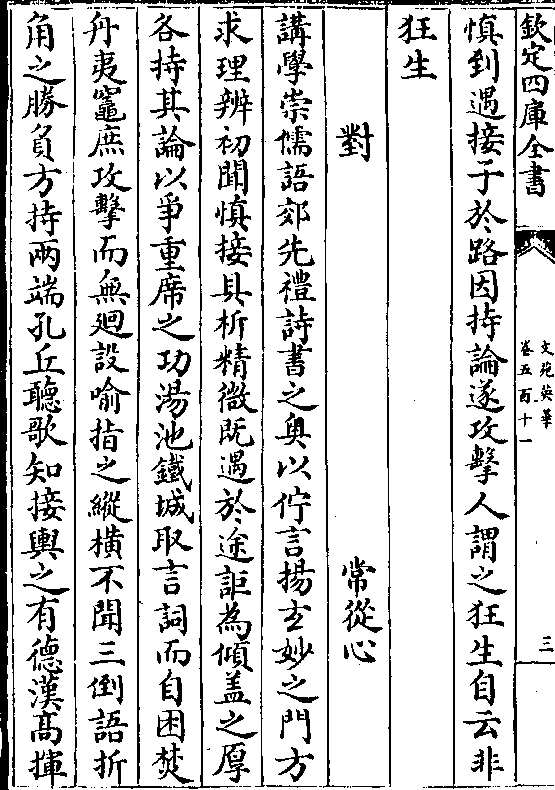 欽定四庫全書
文苑英華
卷五百十一
三
慎到遇接子於路因持論遂攻擊人謂之狂生自云非
狂生
對
常從心
講學崇儒語郊先禮詩書之奧以佇言揚玄妙之門方
求理辨初聞慎接具析精微既遇於途詎為傾盖之厚
各持其論以爭重席之功湯池鐵城取言詞而自困焚
舟夷竈庶攻擊而無廻設喻指之縱橫不聞三倒語折
角之勝負方持兩端孔丘聽歌知接輿之有德漢髙揮